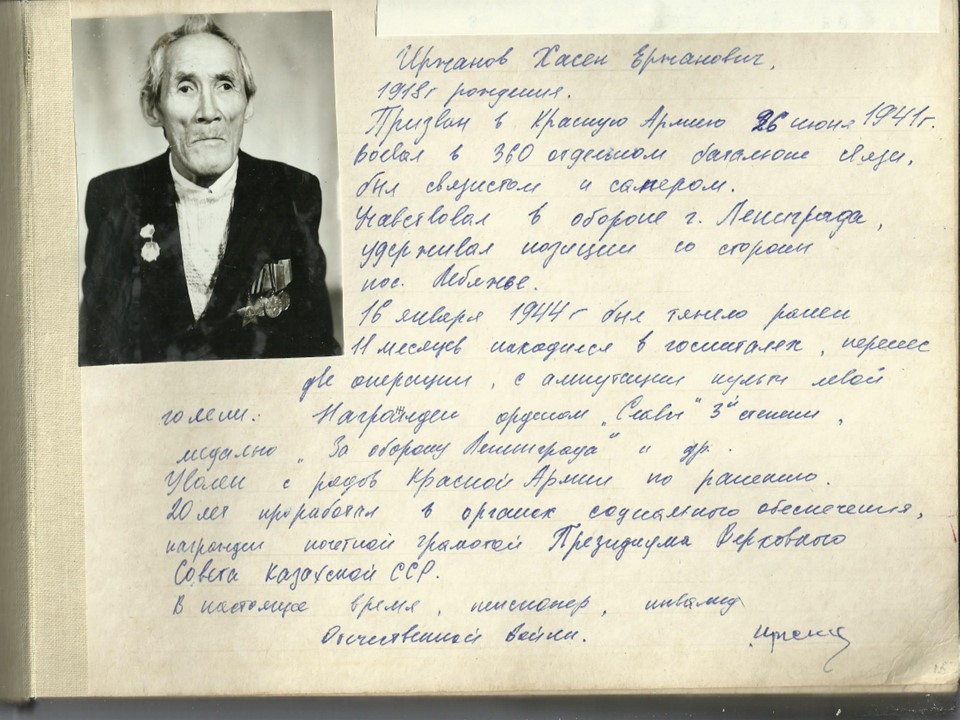 Иржанов Хасен Ержанович,
1918г рождения.
Призван в Красную Армию 26 июня 1941г.
воевал в 360 отдельном батальоне связи,
был связистом и сапером.
Учавствовал в обороне г. Ленинграда,
удерживал позиции со стороны
пос. Лебяжье.
16 января 1944г был тяжело ранен
11 месяцев находился в госпиталях, перенес
две операции, с ампутации культи левой
голени. Награжден орденом „Славы" 3й степени,
медалью „За оборону Ленинграда" и др.
Уволен с рядов Красной Армии по ранению.
20 лет проработал в органах социального обеспечения,
награжден почетной грамотой Президиума Верховного
Совета Казахской ССР.
В настоящее время, пенсионер, инвалид
Отечественной войны.
15